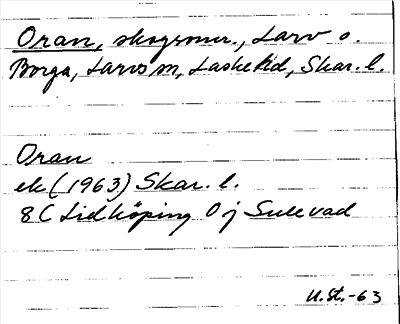 Oran, skogsomr., Larv o.
Borga, Larvs sn, Laske hd, Skar. l.
Oran
ek (1963) Skar. l.
8C Lidköping 0 j Sulevad
U.St.-63